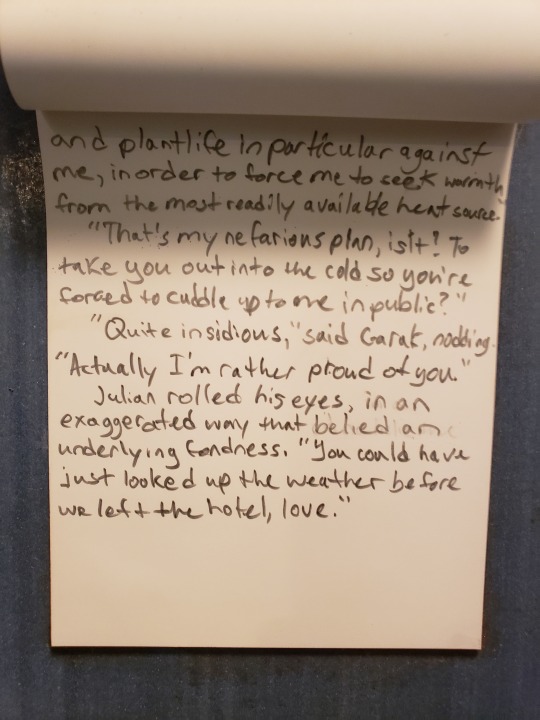 and plantlife in particular against
me, in order to force me to seek warmth
from the most readily available heat source.
"That's my nefarious plan, is it? To
take you out into the cold so you're
forced to cuddle up to me in public?"
"Quite insidious," said Garak, nodding.
"Actually I'm rather proud of you."
Julian rolled his eyes, in an
exaggerated way that belied an
underlying fondness. "You could have
just looked up the weather before
we left the hotel, love."